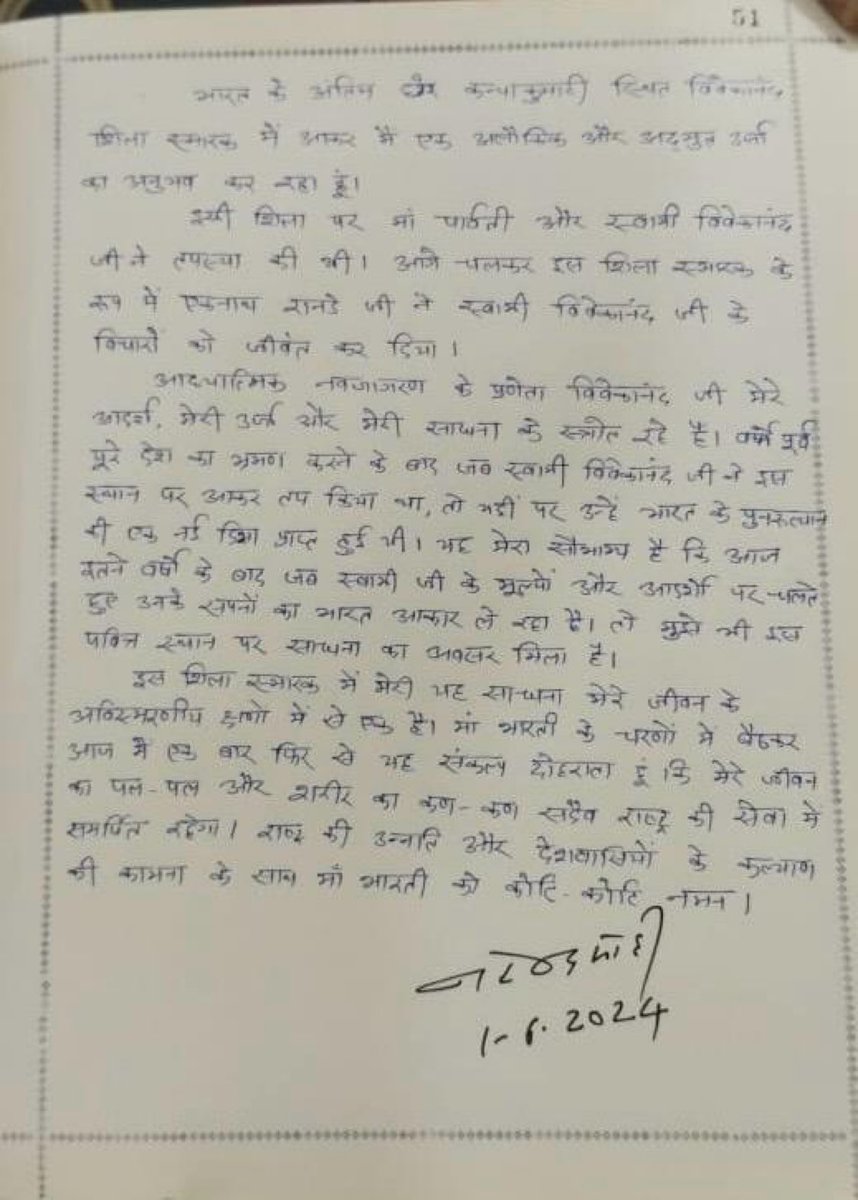 51
भारत के अंतिम छोर कन्याकुमारी स्थित विवेकानंद
शिला स्मारक में आकर मैं एक अलौकिक और अद्भुत उर्जा
का अनुभव कर रहा हूं।
इसी शिला पर मां पार्वती और स्वामी विवेकानंद
जी ने तपस्या की थी। आगे चलकर इस शिला स्मारक के
रूप में एकनाथ रानडे जी ने स्वामी विवेकानंद जी के
विचारों को जीवंत कर दिया।
आध्यात्मिक नवजागरण के प्रणेता विवेकानंद जी मेरे
आदर्श, मेरी उर्जा और मेरी साधना के स्त्रोत रहे है। वर्षों पूर्व
पूरे देश का भ्रमण करने के बाद जब स्वामी विवेकानंद जी ने इस
स्थान पर आकर तप किया था, तो यहीं पर उन्हें भारत के पुनरूत्थान
की एक नई दिशा प्राप्त हुई थी। यह मेरा सौभाग्य है कि आज
इतने वर्षों के बाद जब स्वामी जी के मूल्यों और आदर्शों पर चलते
हुए उनके सपनों का भारत आकार ले रहा है। तो मुझे भी इस
पवित्र स्थान पर साधना का अवसर मिला है।
इस शिला स्मारक में मेरी यह साधना मेरे जीवन के
अविस्मरणीय क्षणों में से एक है। मां भारती के चरणों में बैठकर
आज मैं एक बार फिर से यह संकल्प दोहराता हूं कि मेरे जीवन
का पल-पल और शरीर का कण-कण सदैव राष्ट्र की सेवा में
समर्पित रहेगा। राष्ट्र की उन्नति और देशवासियों के कल्याण
की कामना के साथ माँ भारती को कोटि-कोटि नमन।
नरेन्द्र मोदी
1-6.2024